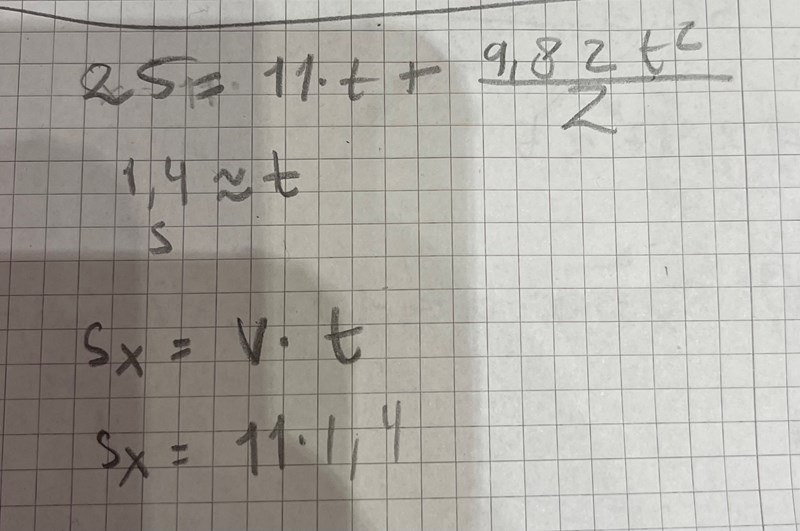 25 = 11·t + 9,82 t² / 2
1,4 ≈ t
s
Sx = v· t
Sx = 11·1,4